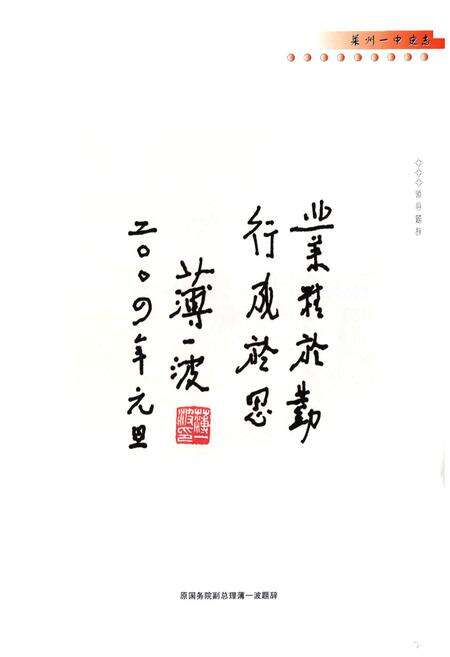 莱州一中史志
◇◇◇领导题辞
業精於勤
行成於思
薄一波
二〇〇四年元旦
薄一波印
原国务院副总理薄一波题辞